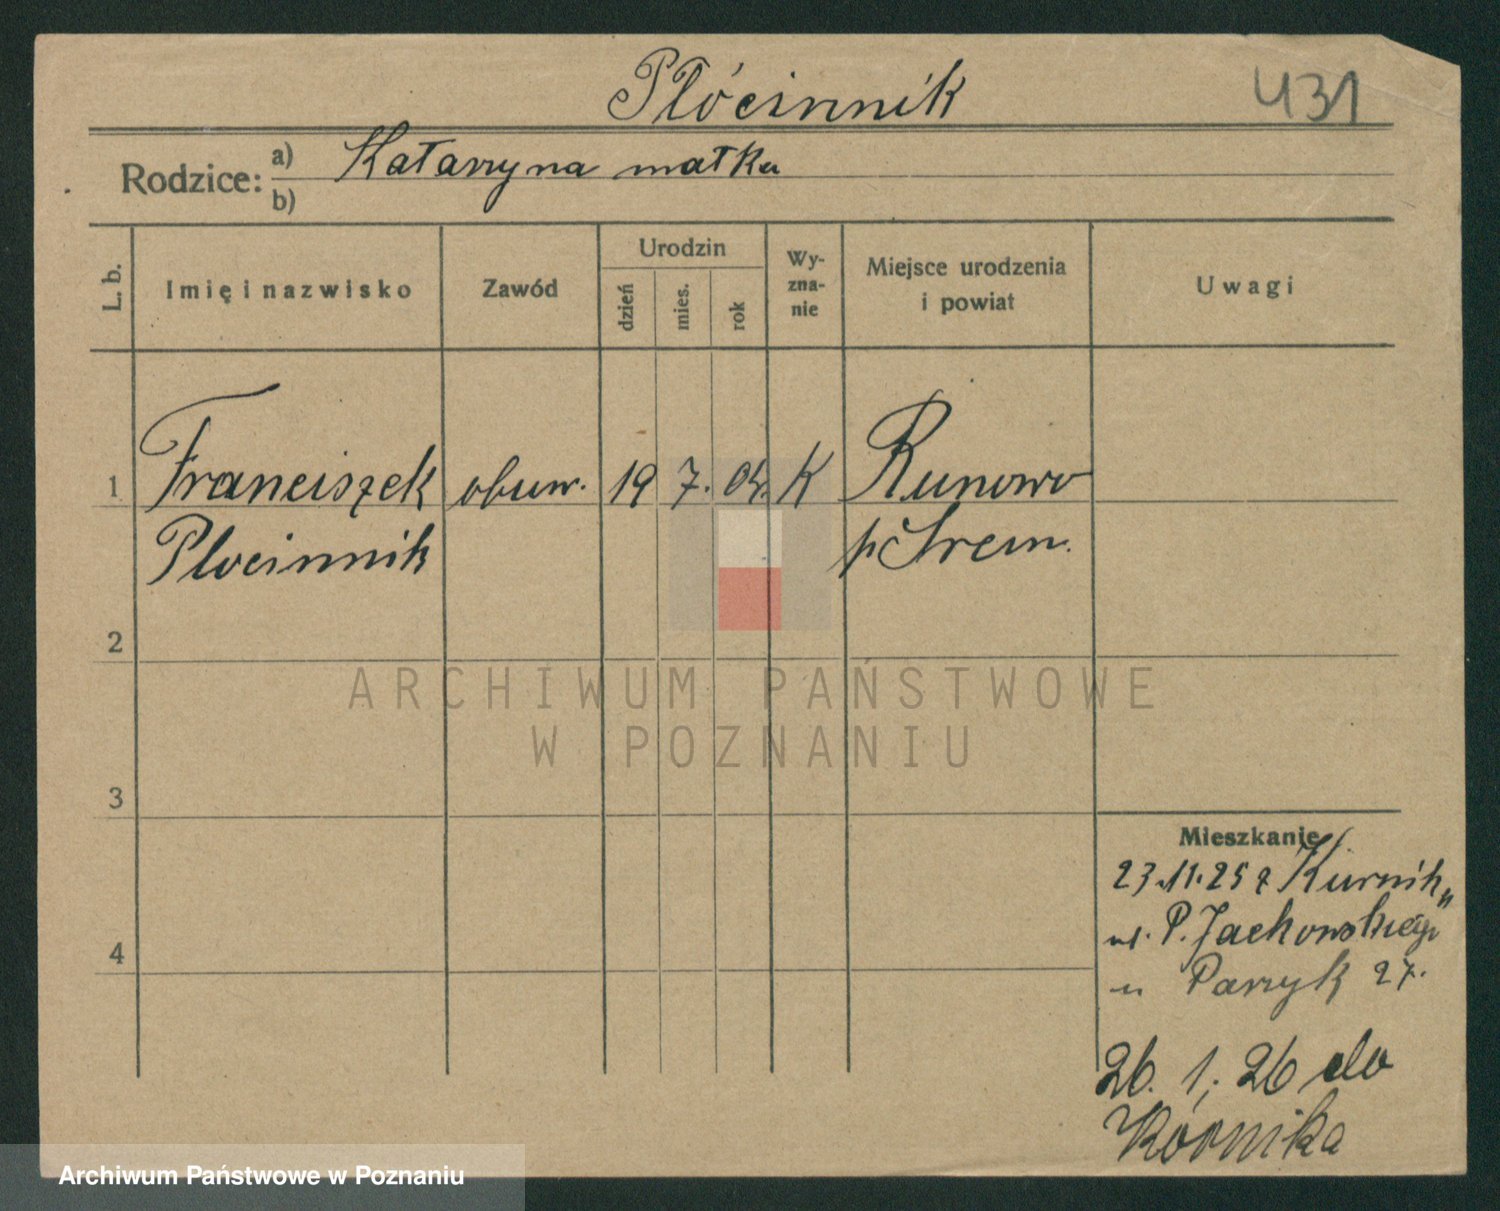 Płócinnik
431
Rodzice: a) Katarzyna matka
b)
L. b.
Imię i nazwisko
Zawód
Urodzin
dzień
mies.
rok
Wy-
zna-
nie
Miejsce urodzenia
i powiat
Uwagi
1 Franciszek obuw. 19 7. 04. K Runowo
Plocinnik p Śrem.
2
ARCHIWUM PAŃSTWOWE
W POZNANIU
3
Mieszkanie
23.11.25 z Kurnik
ul. P. Jackowskiego
u Parzyk 27.
4
26. 1. 26 do
Kórnika
Archiwum Państwowe w Poznaniu